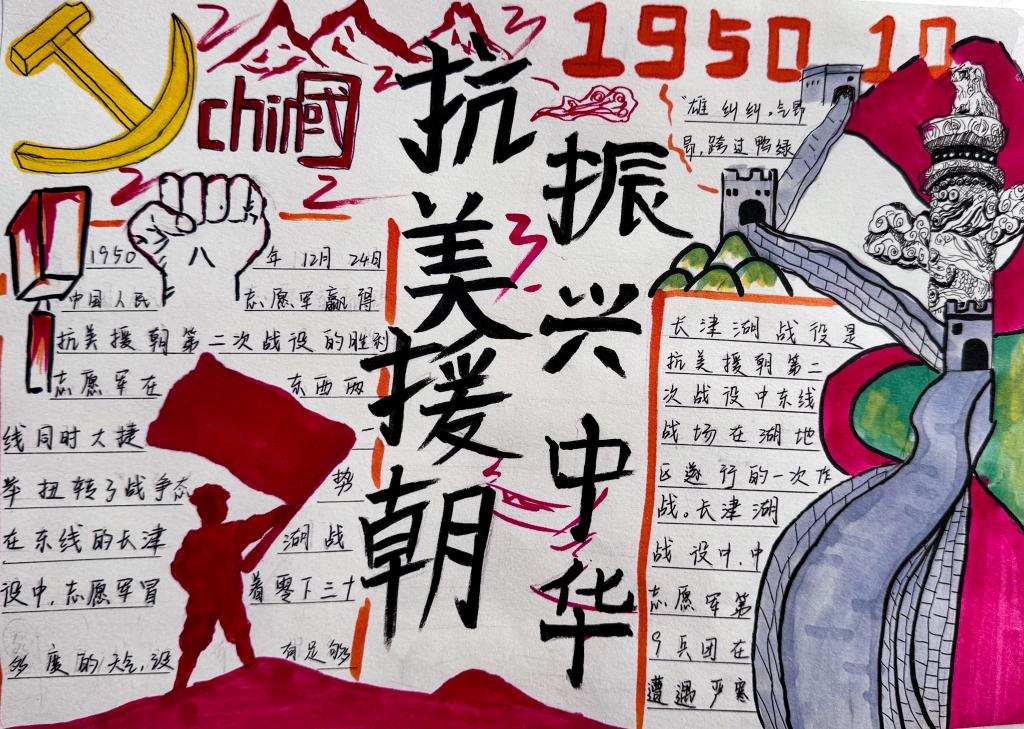 1950 10
chin国
抗美援朝
振兴中华
"雄赳赳,气昂
昂,跨过鸭绿
1950 年 12月 24日
中国人民 志愿军赢得
抗美援朝第二次战设的胜利
志愿军在 东西两
线同时大捷 一
举扭转了战争态 势
在东线的长津 湖战
设中,志愿军冒 着零下三十
多度的天气,设 有足够
长津湖战设是
抗美援朝第二
次战设中东线
战场在湖地
区遂行的一次作
战。长津湖
战设中,中
志愿军第
9兵团在
遭遇严寒